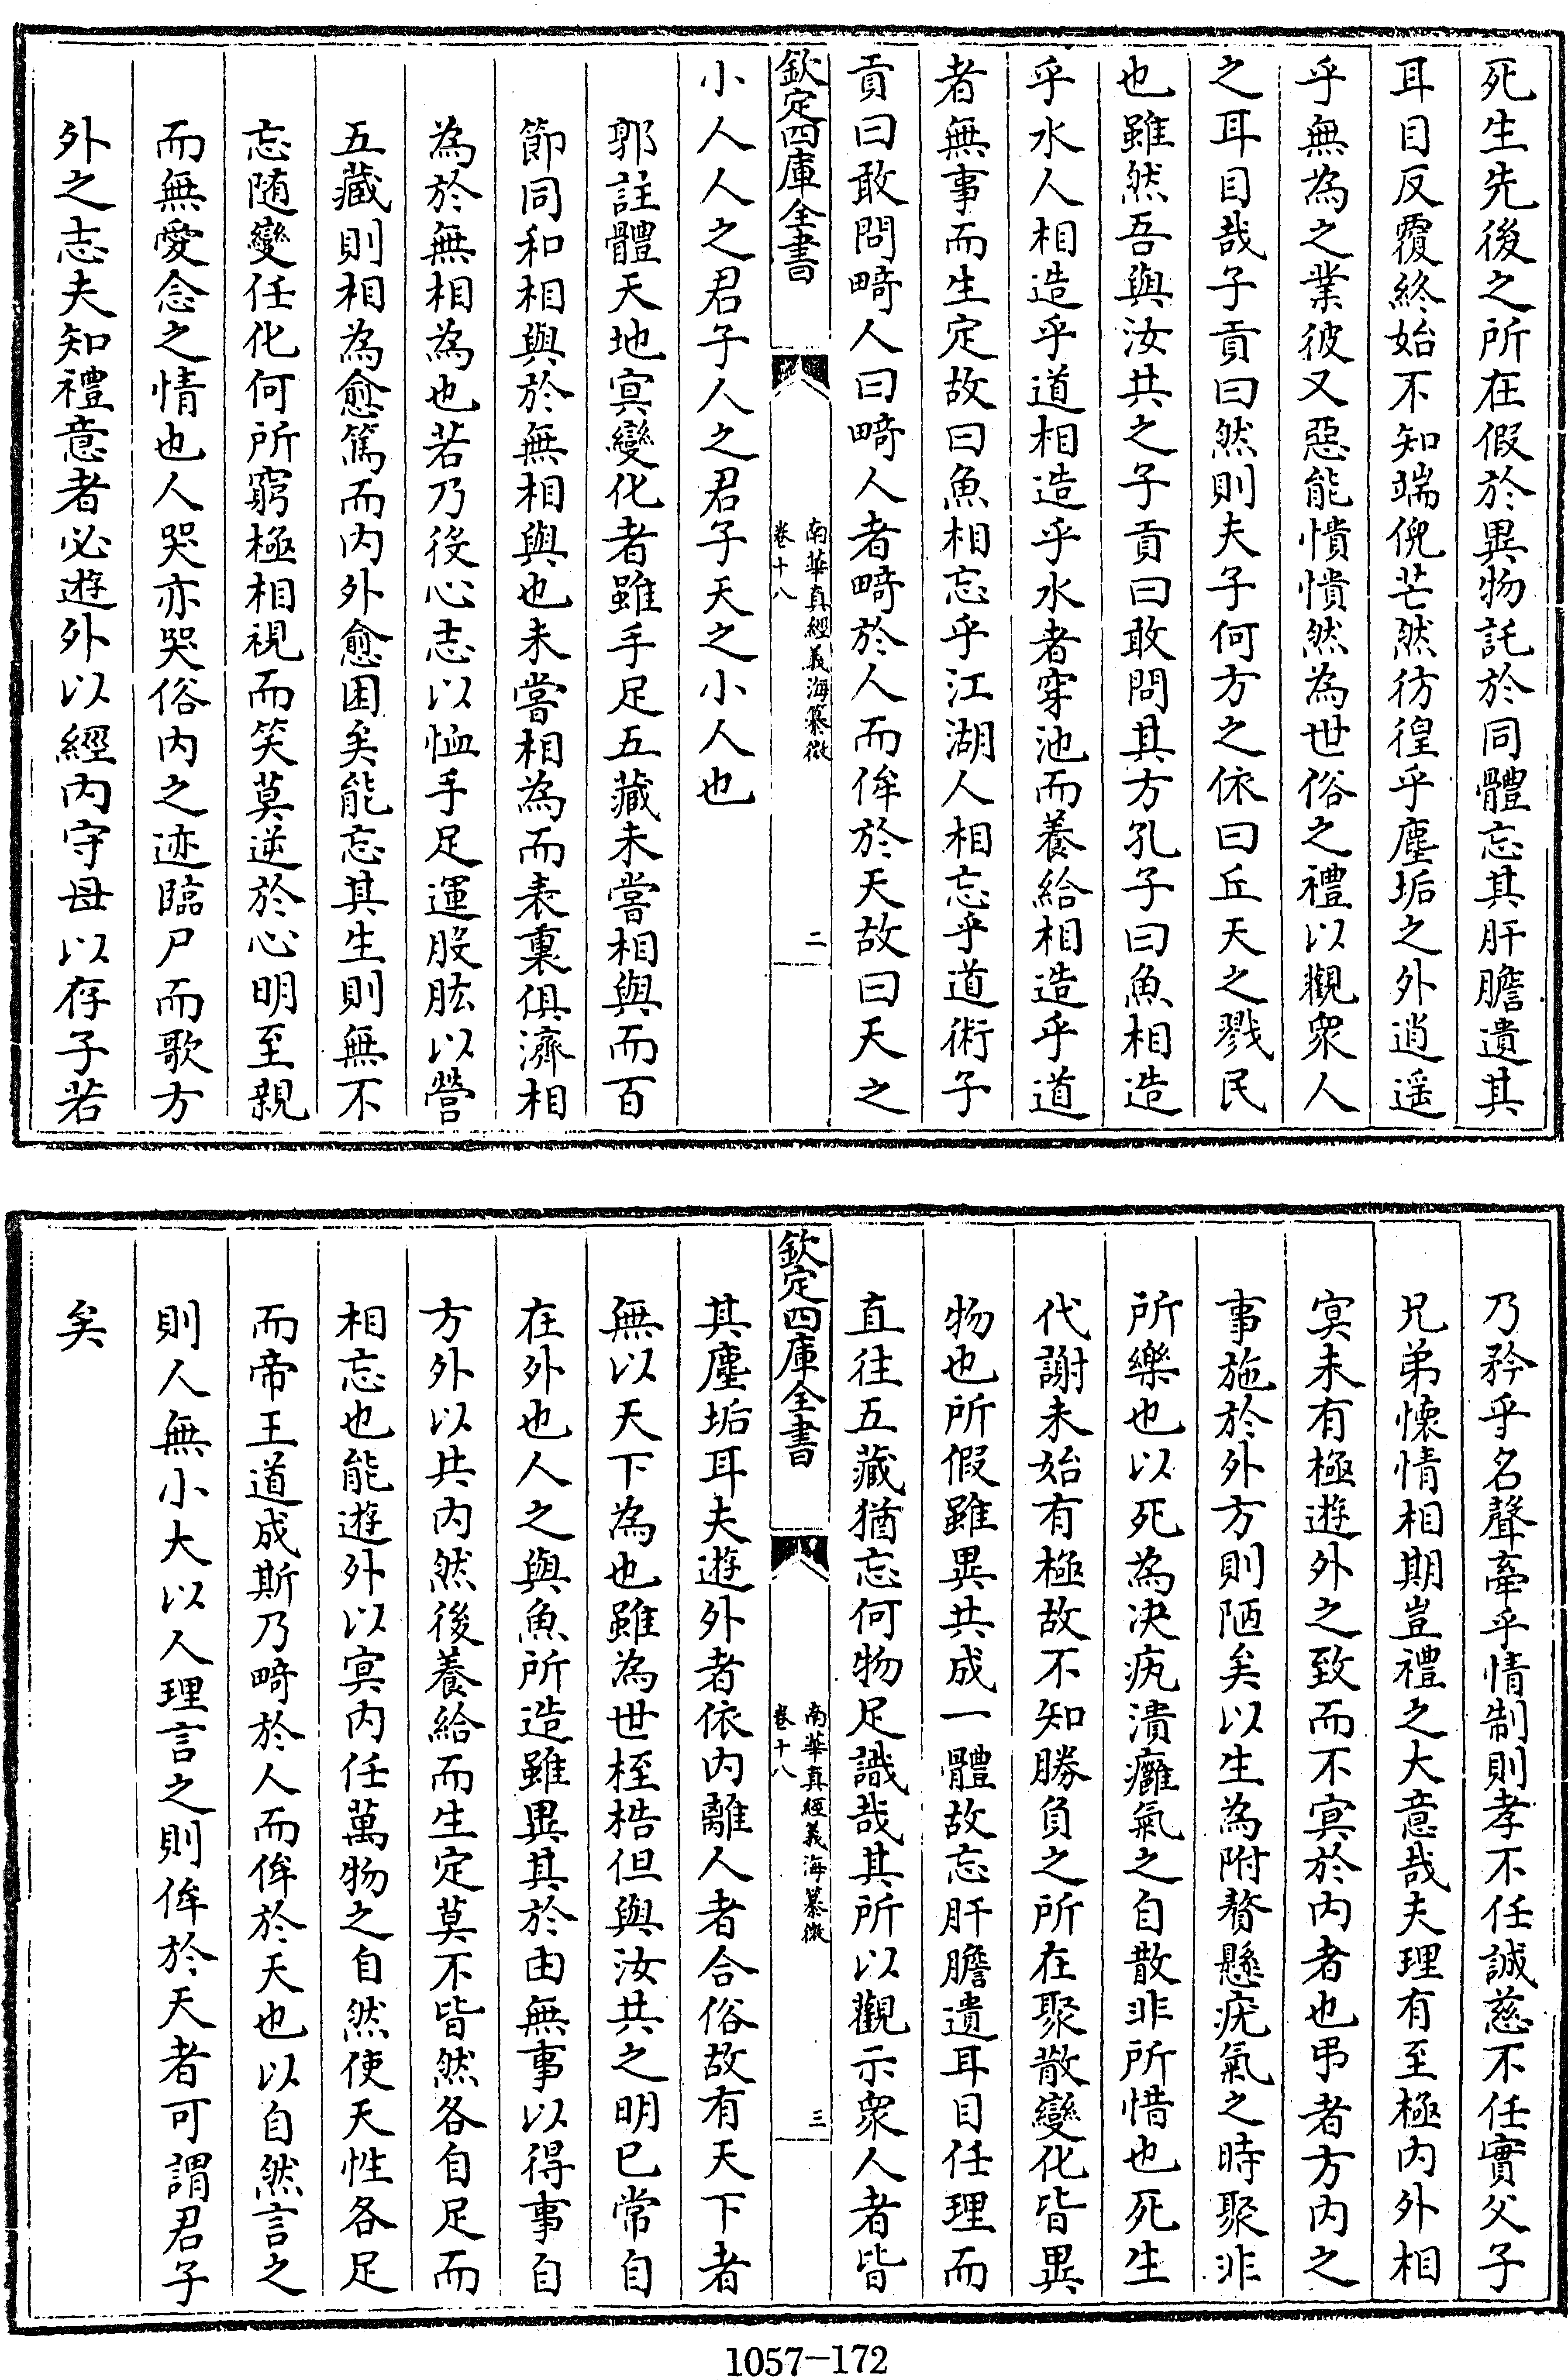 死生先後之所在假於異物託於同體忘其肝膽遺其
耳目反覆終始不知端倪芒然彷徨乎塵垢之外逍遥
乎無為之業彼又惡能憒憒然為世俗之禮以觀衆人
之耳目哉子貢曰然則夫子何方之依曰丘天之戮民
也雖然吾與汝共之子貢曰敢問其方孔子曰魚相造
乎水人相造乎道相造乎水者穿池而養給相造乎道
者無事而生定故曰魚相忘乎江湖人相忘乎道術子
貢曰敢問畸人曰畸人者畸於人而侔於天故曰天之
欽定四庫全書
南華真經義海纂微
卷十八
二
小人人之君子人之君子天之小人也
郭註體天地㝠變化者雖手足五藏未嘗相與而百
節同和相與於無相與也未嘗相為而表裏俱濟相
為於無相為也若乃役心志以恤手足運股肱以營
五藏則相為愈篤而内外愈困矣能忘其生則無不
忘随變任化何所窮極相視而笑莫逆於心明至親
而無愛念之情也人哭亦哭俗内之迹臨尸而歌方
外之志夫知禮意者必遊外以經内守母以存子若
乃矜乎名聲牽乎情制則孝不任誠慈不任實父子
兄弟懷情相期豈禮之大意哉夫理有至極内外相
㝠未有極遊外之致而不㝠於内者也弔者方内之
事施於外方則陋矣以生為附贅懸疣氣之時聚非
所樂也以死為决疻潰癰氣之自散非所惜也死生
代謝未始有極故不知勝負之所在聚散變化皆異
物也所假雖異共成一體故忘肝膽遺耳目任理而
直往五藏猶忘何物足識哉其所以觀示衆人者皆
欽定四庫全書
南華真經義海纂微
卷十八
三
其塵垢耳夫遊外者依内離人者合俗故有天下者
無以天下為也雖為世桎梏但與汝共之明已常自
在外也人之與魚所造雖異其於由無事以得事自
方外以共内然後養給而生定莫不皆然各自足而
相忘也能遊外以㝠内任萬物之自然使天性各足
而帝王道成斯乃畸於人而侔於天也以自然言之
則人無小大以人理言之則侔於天者可謂君子
矣
1057-172